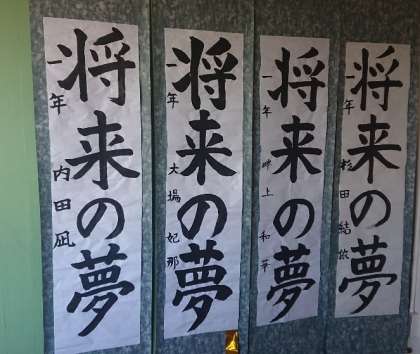 将来の夢
一年 内田凪
将来の夢
一年 大場妃那
将来の夢
一年 上和華
将来の夢
一年 杉田結依